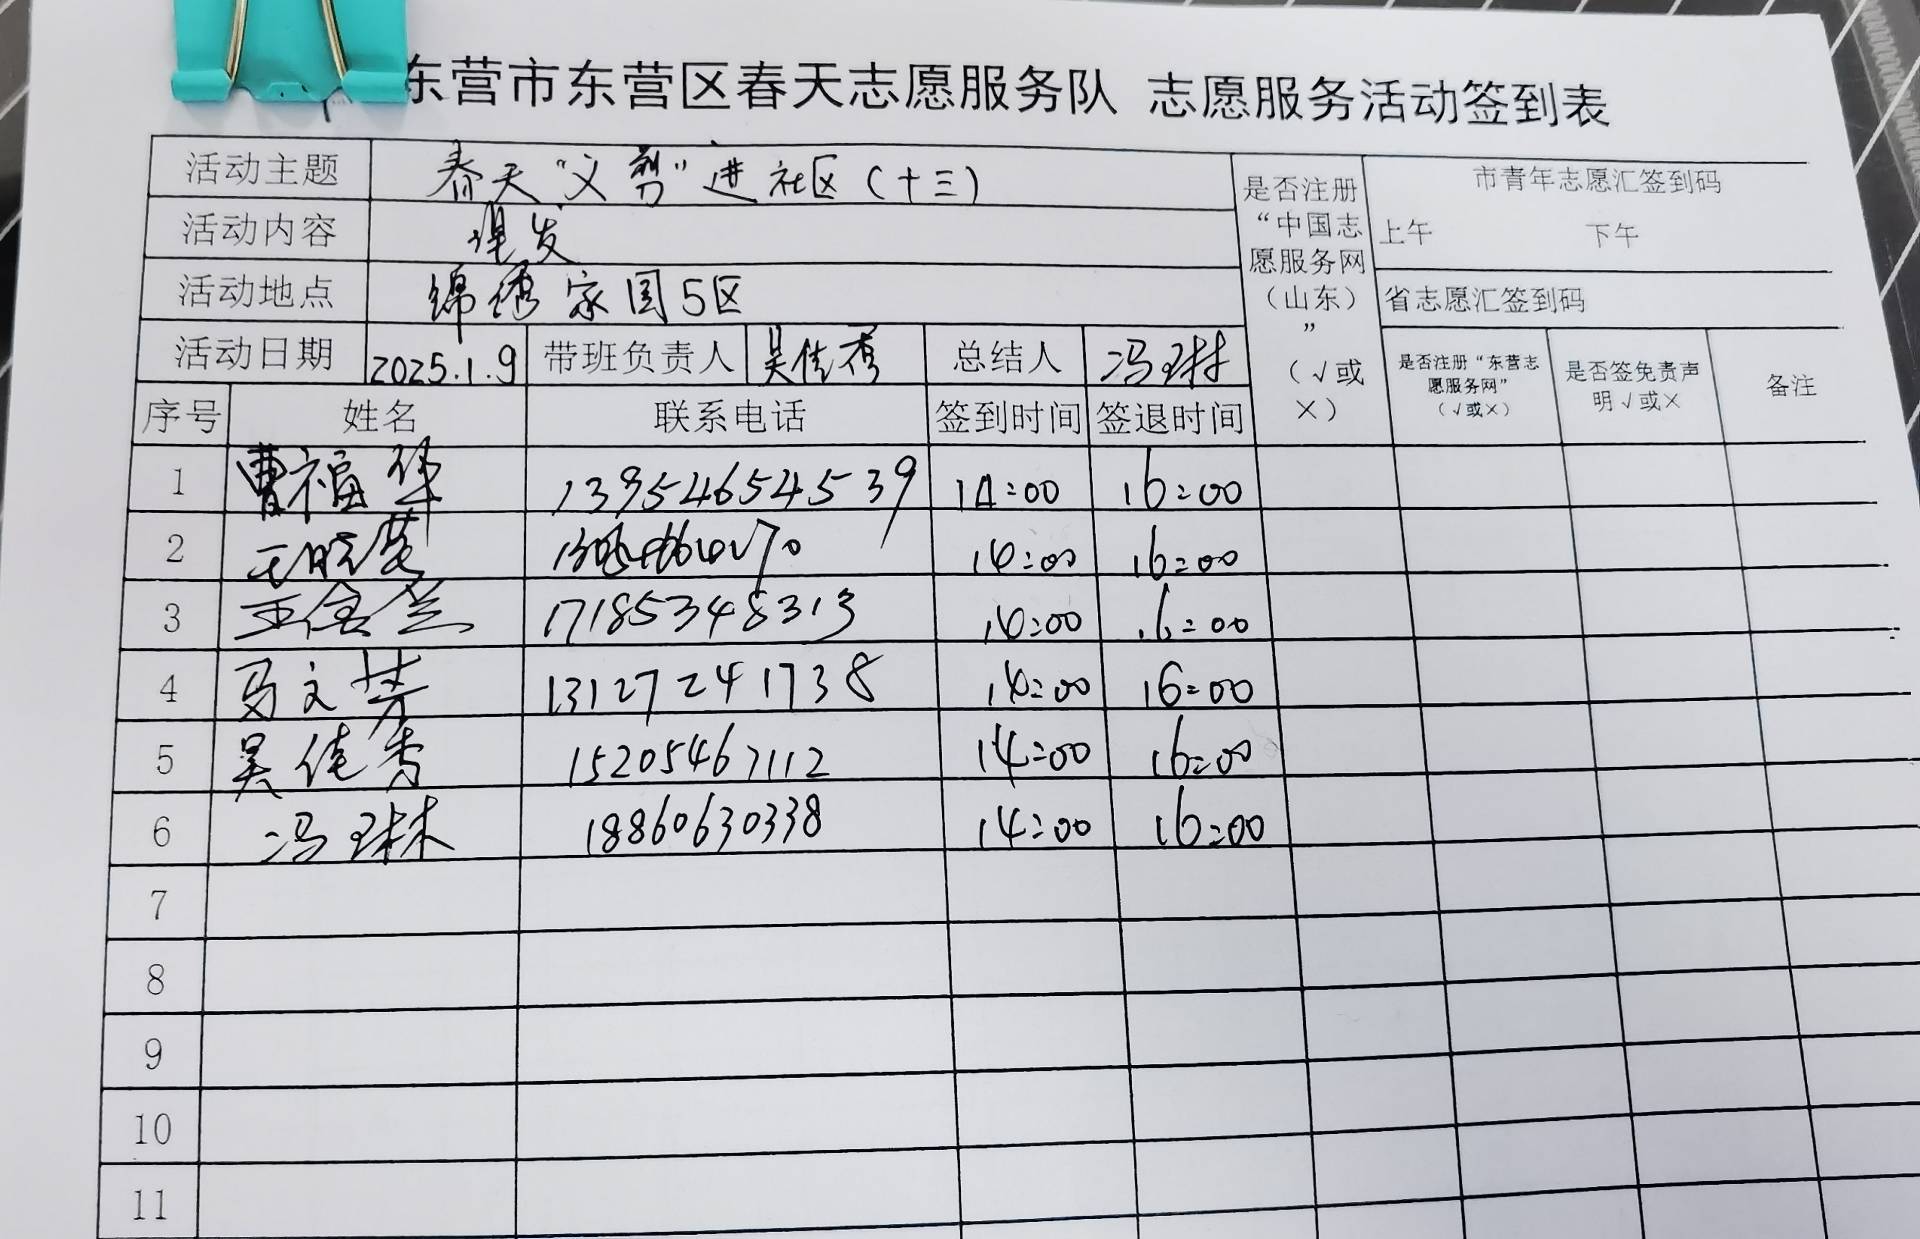 东营市东营区春天志愿服务队 志愿服务活动签到表
活动主题 春天“义剪”进社区(十三)
活动内容 理发
活动地点 锦绣家园5区
活动日期 2025.1.9 带班负责人 吴佳秀 总结人 冯琳
是否注册“中国志愿服务网（山东）”（√或×）
市青年志愿汇签到码
上午 下午
省志愿汇签到码
是否注册“东营志愿服务网”（√或×） 是否签免责声明√或× 备注
序号 姓名 联系电话 签到时间 签退时间
1 曹福华 13954654539 14:00 16:00
2 王晓 14:00 16:00
3 王金兰 17185348313 14:00 16:00
4 马文芳 13127241738 14:00 16:00
5 吴佳秀 15205467112 14:00 16:00
6 冯琳 18860630338 14:00 16:00
7
8
9
10
11